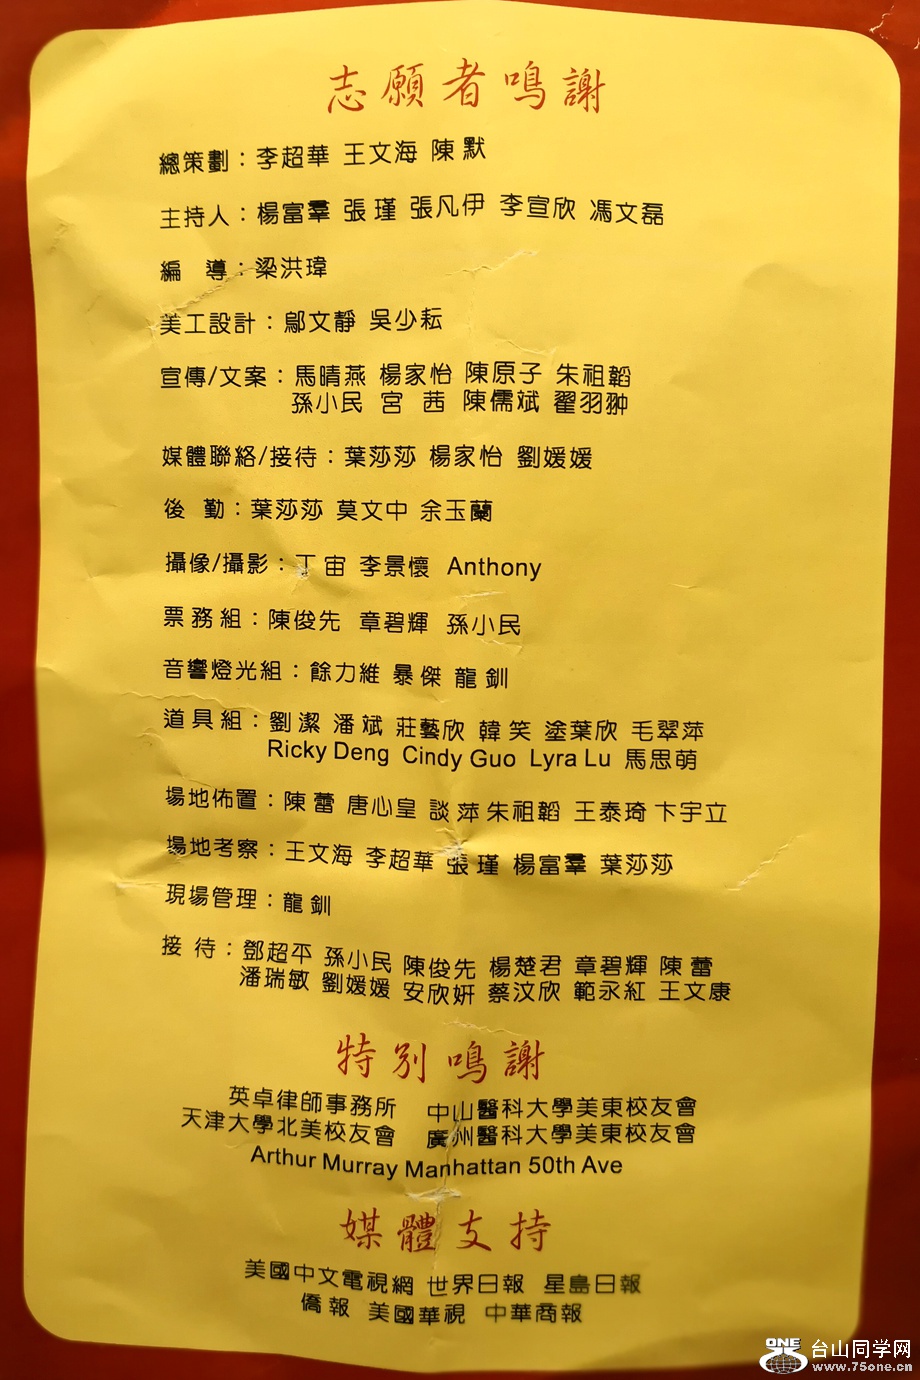 志願者鳴謝
總策劃：李超華 王文海 陳 默
主持人：楊富羣 張 瑾 張凡伊 李宣欣 馮文磊
編 導：梁洪瑋
美工設計：鄔文靜 吳少耘
宣傳/文案：馬晴燕 楊家怡 陳原子 朱祖韜
孫小民 宮 茜 陳儒斌 翟羽翀
媒體聯絡/接待：葉莎莎 楊家怡 劉媛媛
後 勤：葉莎莎 莫文中 余玉蘭
攝像/攝影：丁 宙 李景懷 Anthony
票務組：陳俊先 章碧輝 孫小民
音響燈光組：餘力維 暴傑 龍 釧
道具組：劉 潔 潘 斌 莊藝欣 韓 笑 塗葉欣 毛翠萍
Ricky Deng Cindy Guo Lyra Lu 馬思萌
場地佈置：陳 蕾 唐心皇 談 萍 朱祖韜 王泰琦 卞宇立
場地考察：王文海 李超華 張 瑾 楊富羣 葉莎莎
現場管理：龍 釧
接 待：鄧超平 孫小民 陳俊先 楊楚君 章碧輝 陳 蕾
潘瑞敏 劉媛媛 安欣妍 蔡汶欣 範永紅 王文康
特別鳴謝
英卓律師事務所 中山醫科大學美東校友會
天津大學北美校友會 廣州醫科大學美東校友會
Arthur Murray Manhattan 50th Ave
媒體支持
美國中文電視網 世界日報 星島日報
僑報 美國華視 中華商報
ONE 台山同学网
www.75one.cn